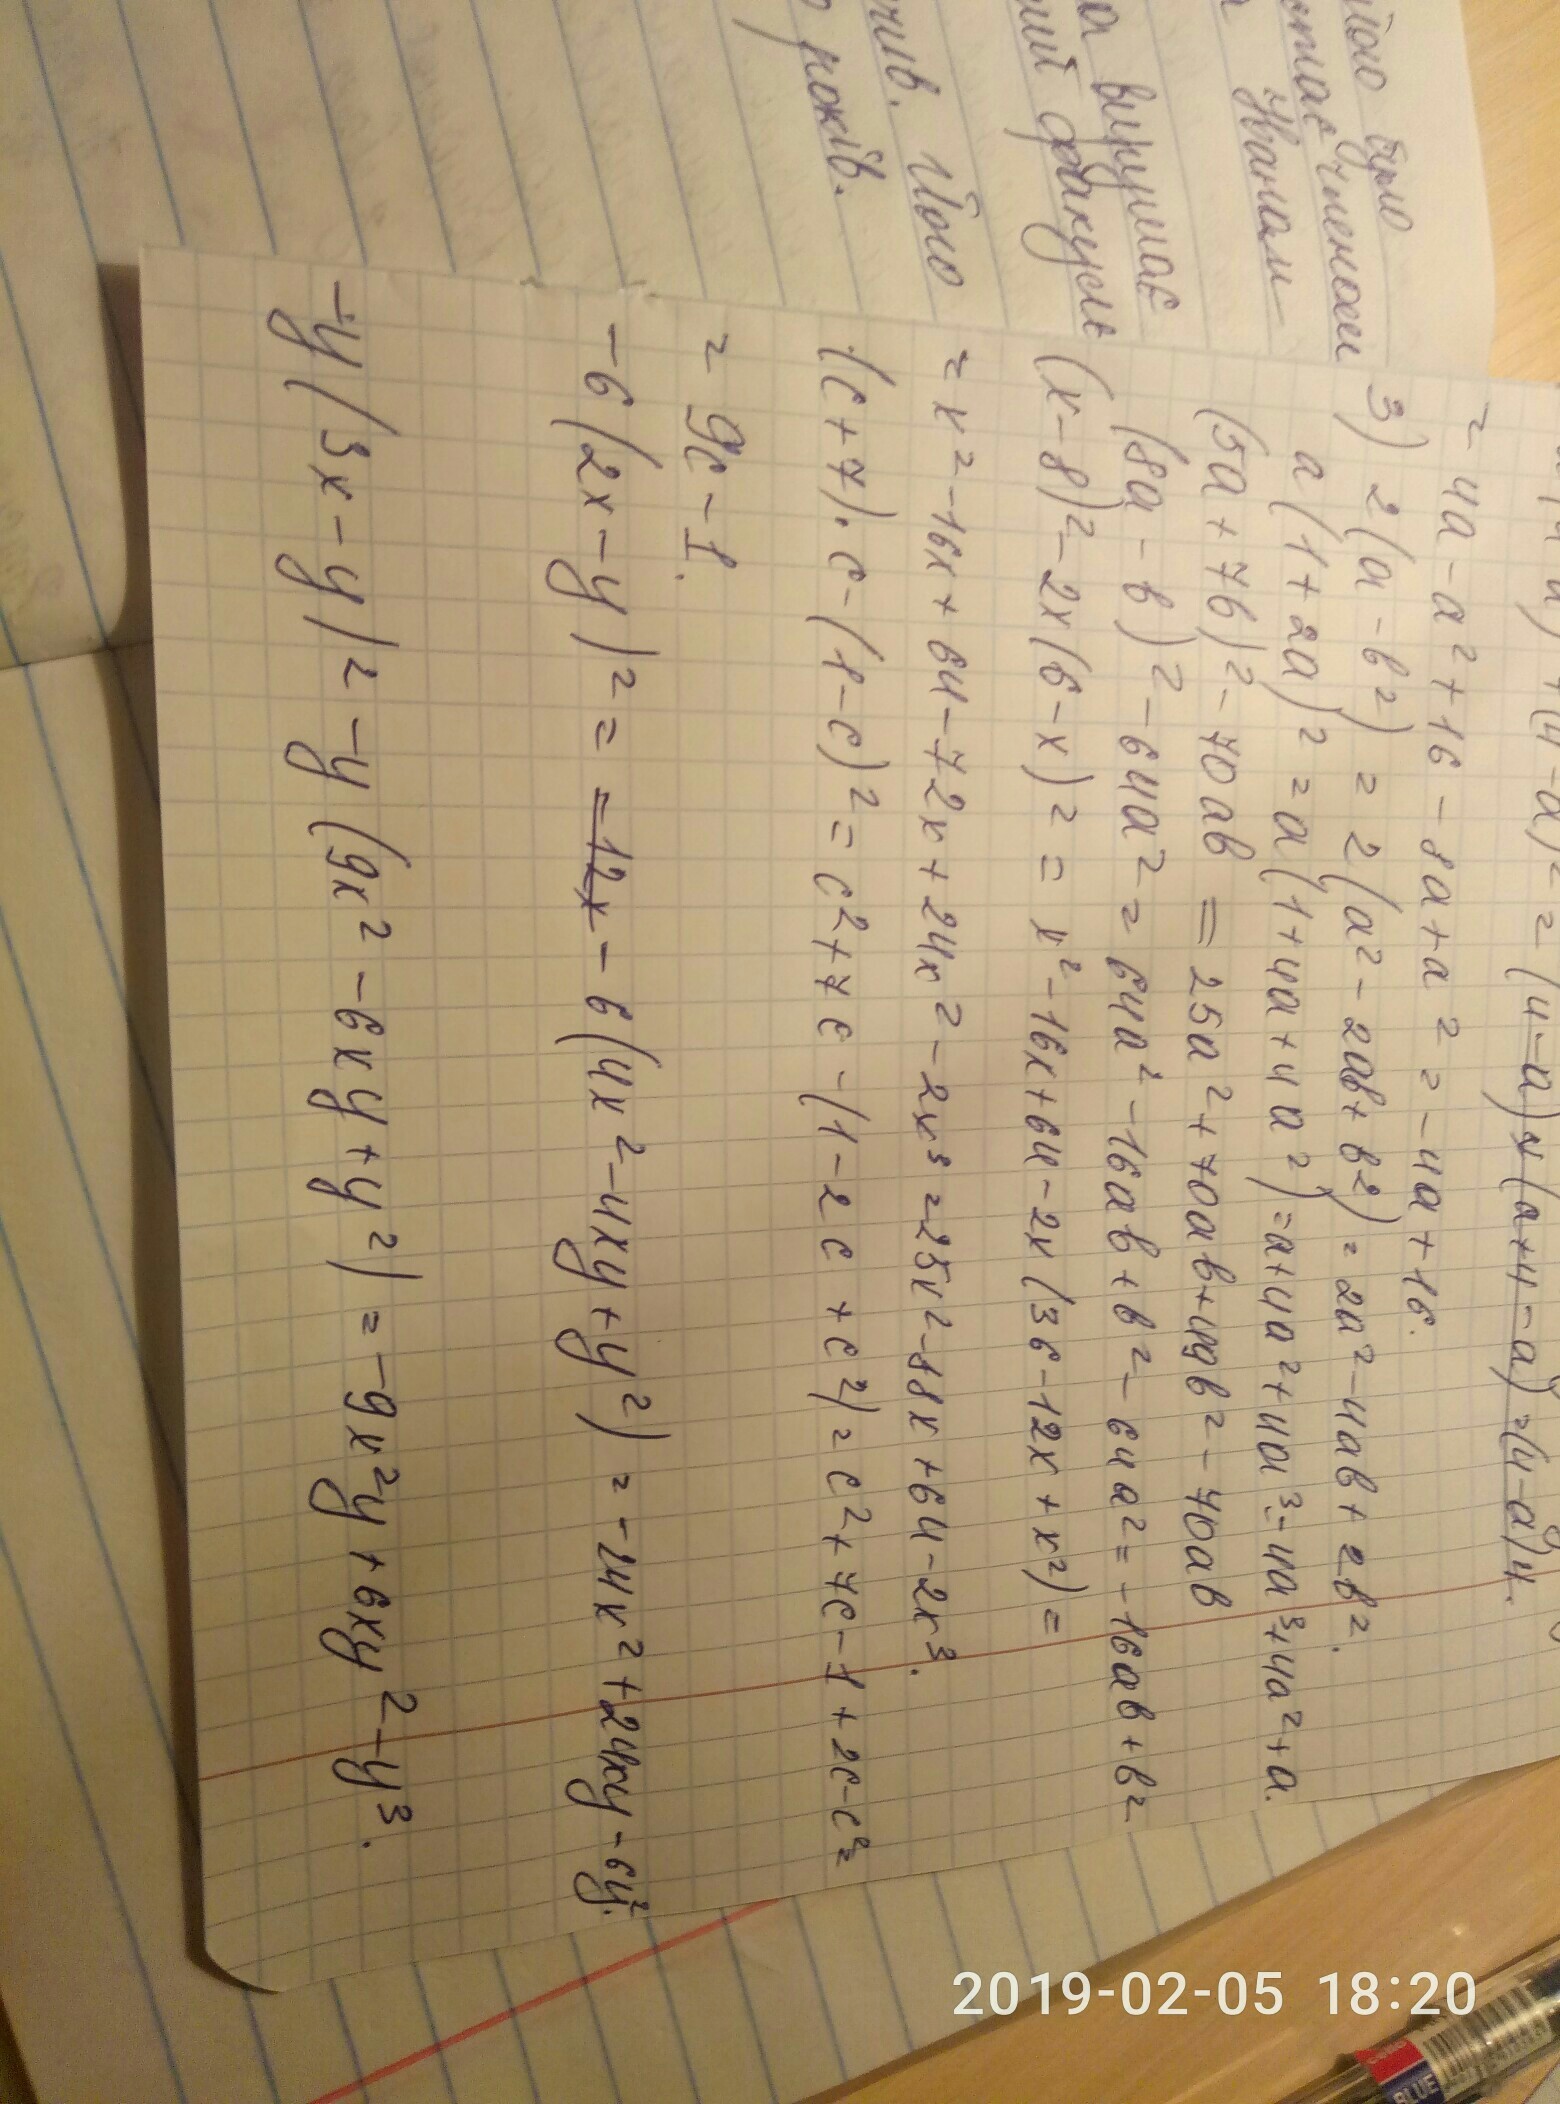 (4-a)+(4-a)²=(4-a)×(a+4-a)=(4-a)4.
=4a-a²+16-8a+a²=-4a+16.
3) 2(a-b²)=2(a²-2ab+b²)=2a²-4ab+2b².
a(1+2a)²=a(1+4a+4a²)=a+4a²+4a³=4a³+4a²+a.
(5a+7b)²-70ab=25a²+70ab+49b²-70ab
(8a-b)²-64a²=64a²-16ab+b²-64a²=-16ab+b²
(x-8)²-2x(6-x)²=x²-16x+64-2x(36-12x+x²)=
=x²-16x+64-72x+24x²-2x³=25x²-88x+64-2x³.
(c+7)·c-(1-c)²=c²+7c-(1-2c+c²)=c²+7c-1+2c-c²=
=9c-1.
-6(2x-y)²=-6(4x²-4xy+y²)=-24x²+24xy-6y².
-y(3x-y)²-y(9x²-6xy+y²)=-9x²y+6xy²-y³.
його було
Званам
а вирушає
ший факуль
чив. Його
років.
2019-02-05 18:20
BLUE